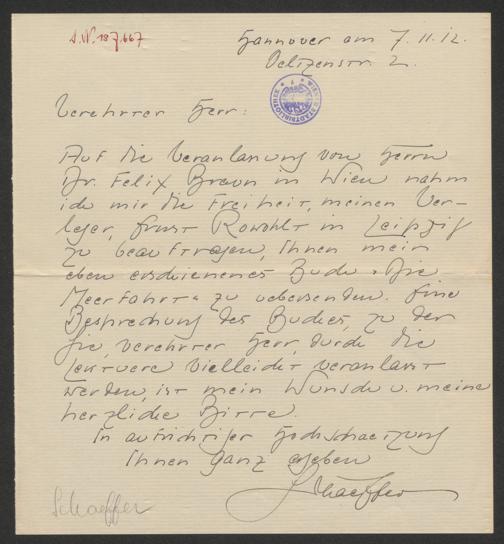 J.N. 187.667
Hannover am 7.11.12.
Oeltzenstr. 2.
WIENER STADTBIBLIOTHEK
Verehrter Herr:
Auf die Veranlassung von Herrn
Dr. Felix Braun in Wien nahm
ich mir die Freiheit, meinen Ver-
leger, Ernst Rowohlt in Leipzig
zu beauftragen, Ihnen mein
eben erschienenes Buch „Die
Meerfahrt“ zu uebersenden. Eine
Besprechung des Buches, zu der
Sie, verehrter Herr, durch die
Lektuere vielleicht veranlasst
werden, ist mein Wunsch u. meine
herzliche Bitte.
In aufrichtiger Hochschaetzung
Ihnen ganz ergeben
Schaeffer
Schaeffer